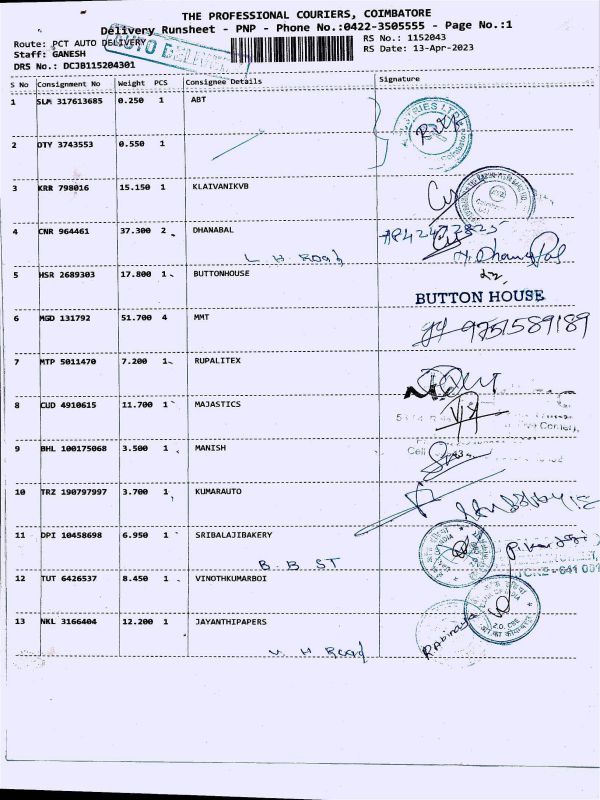 THE PROFESSIONAL COURIERS, COIMBATORE
Delivery Runsheet - PNP - Phone No.:0422-3505555 - Page No.:1
Route: PCT AUTO DELIVERY
AUTO DELIVERY
RS No.: 1152043
Staff: GANESH
RS Date: 13-Apr-2023
DRS No.: DCJB115204301
S No Consignment No Weight PCS Consignee Details Signature
1 SLM 317613685 0.250 1 ABT
2 OTY 3743553 0.550 1
3 KRR 798016 15.150 1 KLAIVANIKVB
4 CNR 964461 37.300 2 DHANABAL
L H ROad
5 HSR 2689303 17.800 1 BUTTONHOUSE
BUTTON HOUSE
6 MGD 131792 51.700 4 MMT
9751589189
7 MTP 5011470 7.200 1 RUPALITEX
8 CUD 4910615 11.700 1 MAJASTICS
9 BHL 100175068 3.500 1 MANISH
Cell
10 TRZ 190797997 3.700 1 KUMARAUTO
11 DPI 10458698 6.950 1 SRIBALAJIBAKERY
B. B ST
12 TUT 6426537 8.450 1 VINOTHKUMARBOI
13 NKL 3166404 12.200 1 JAYANTHIPAPERS